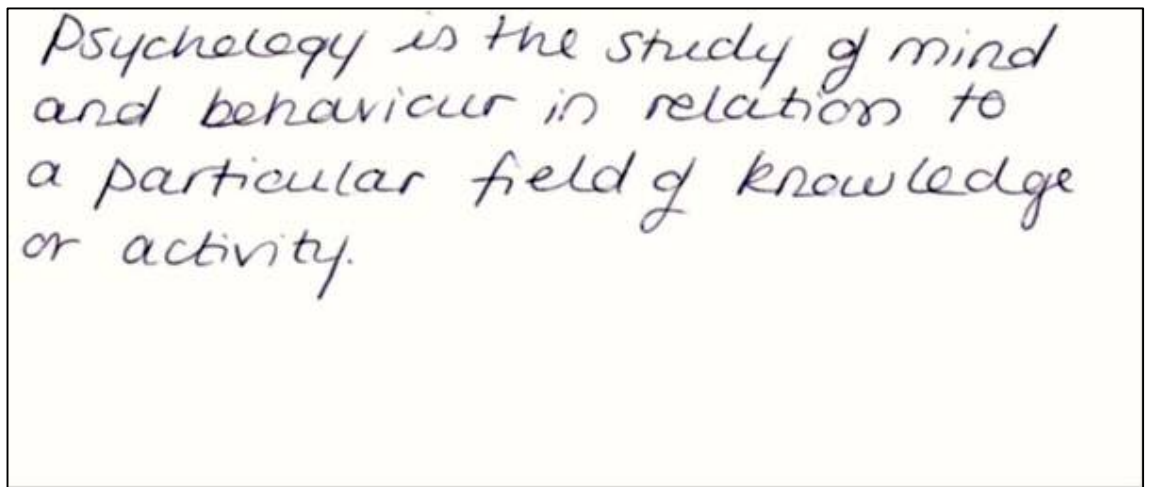 Psychology is the study of mind
and behaviour in relation to
a particular field of knowledge
or activity.